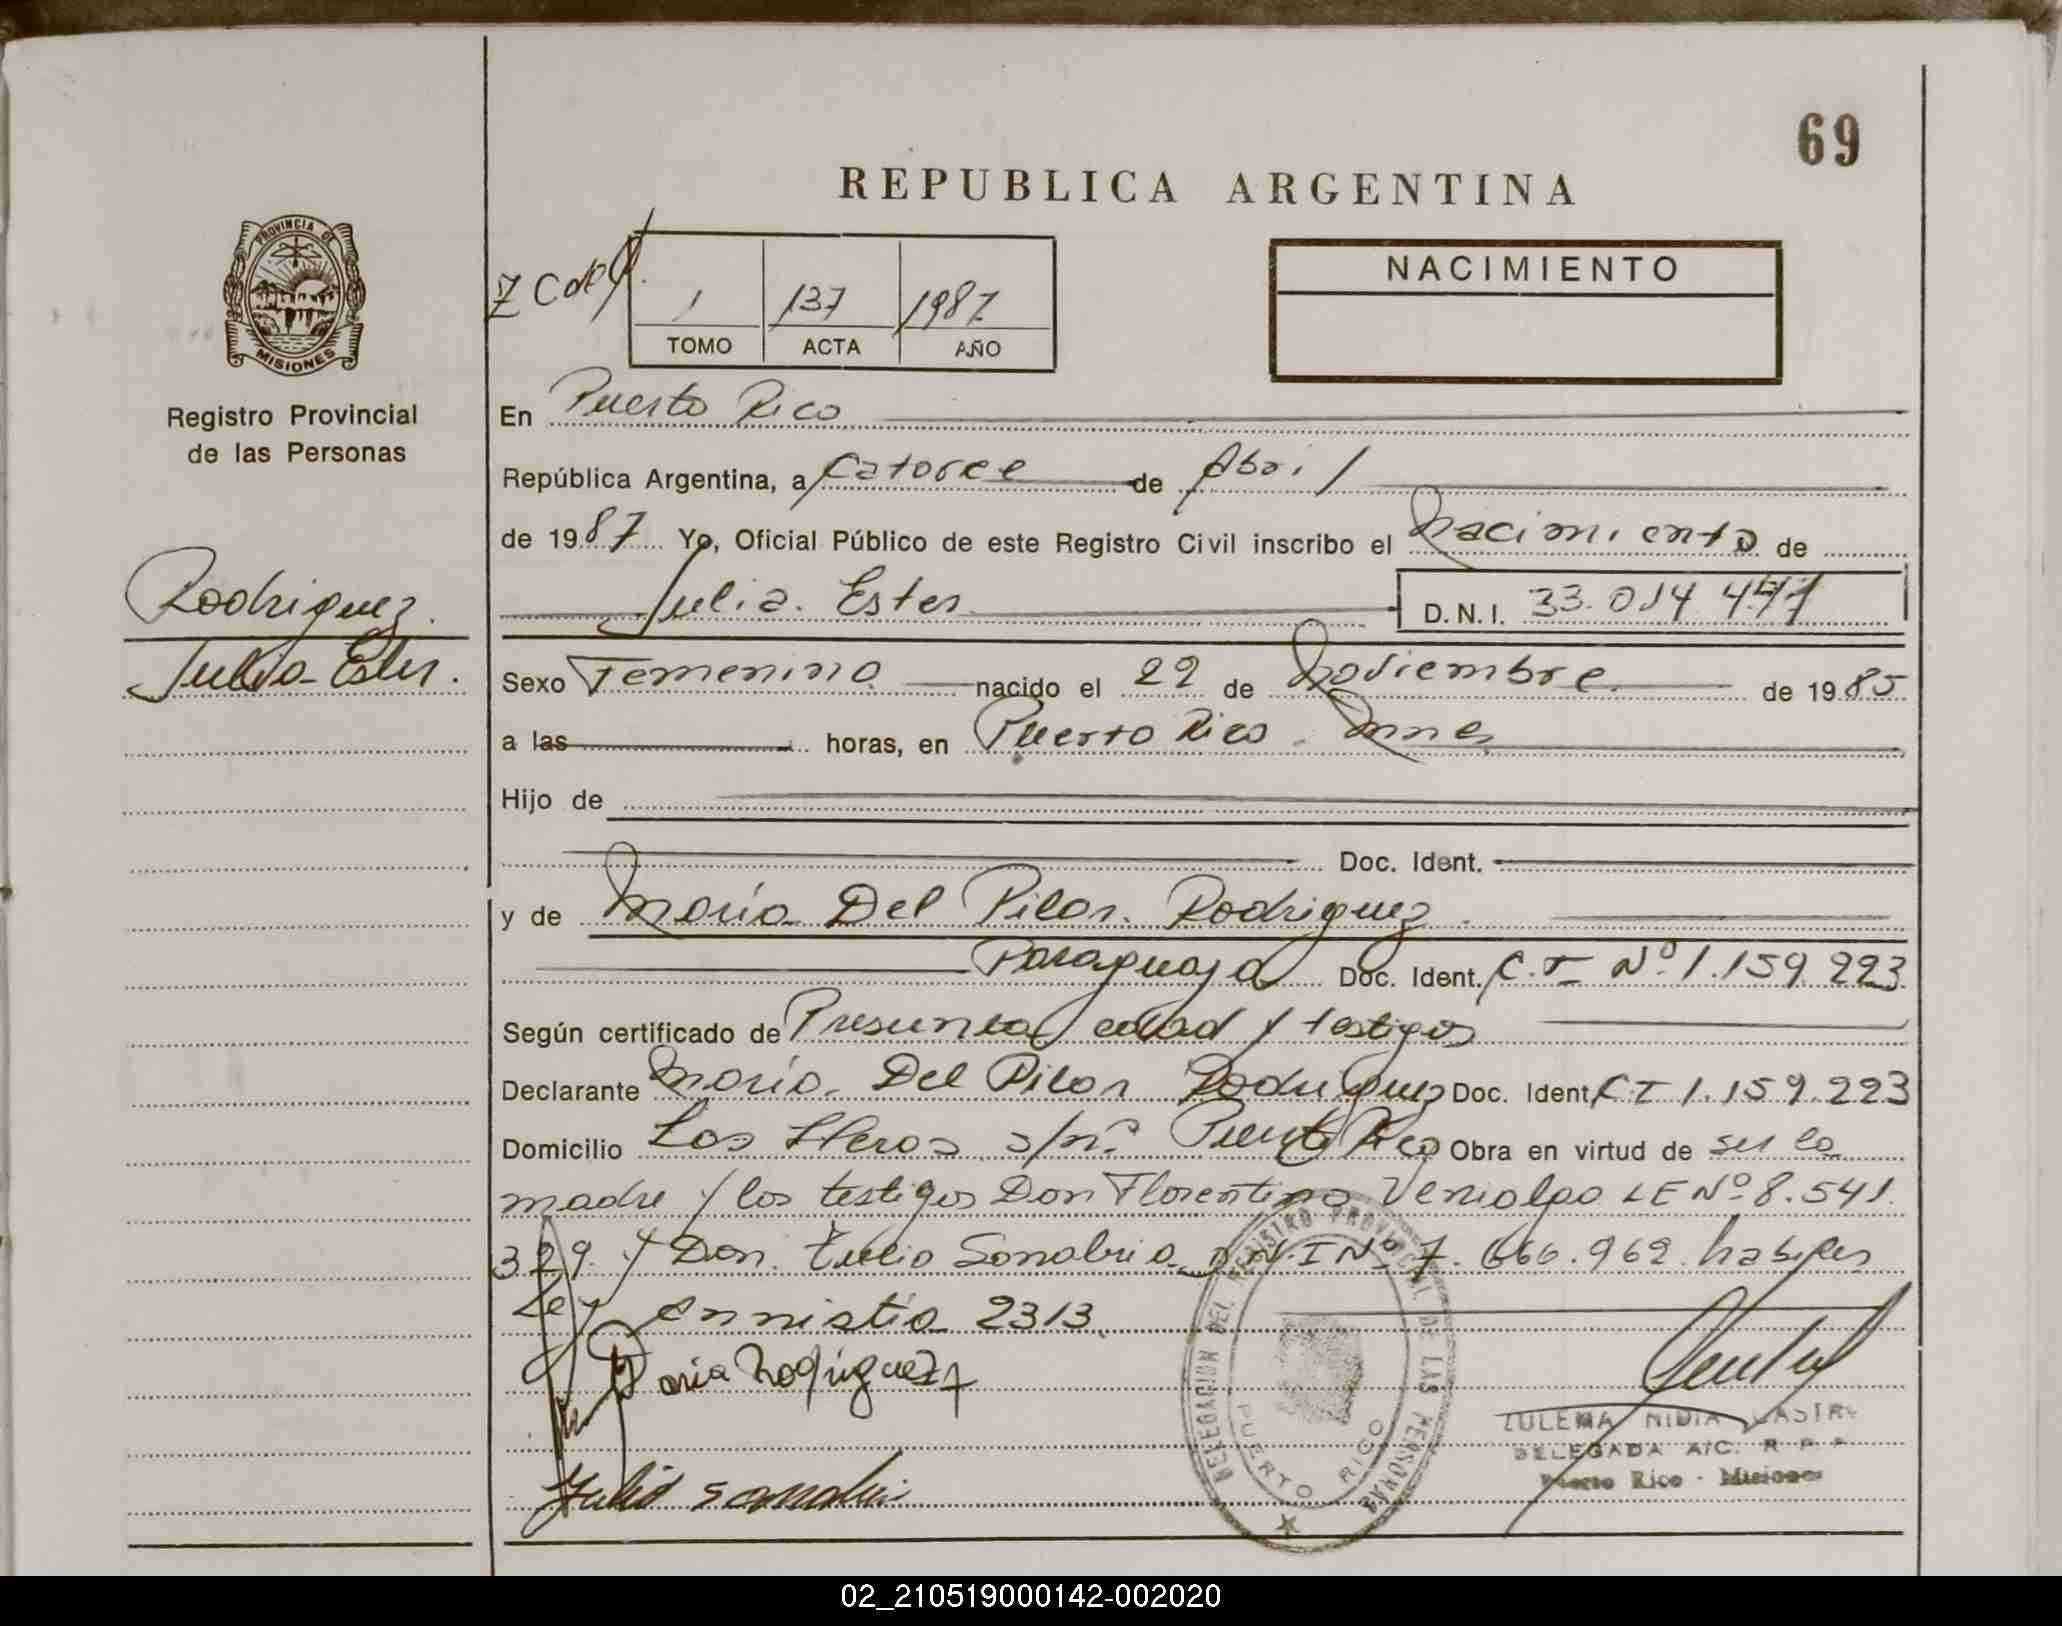 69
REPUBLICA ARGENTINA
PROVINCIA DE
MISIONES
Registro Provincial
de las Personas
1 137 1987
TOMO ACTA AÑO
NACIMIENTO
En Puerto Rico
República Argentina, a Catorce de Abril
de 1987 Yo, Oficial Público de este Registro Civil inscribo el Nacimiento de
Julia Ester D.N.I. 33.014.477
Rodriguez
Julia Ester.
Sexo Femenino nacido el 22 de Noviembre de 1985
a las horas, en Puerto Rico Mnes
Hijo de
Doc. Ident.
y de María Del Pilar Rodriguez
Paraguaya Doc. Ident. C.I Nº 1.159.223
Según certificado de Presunta edad y testigos
Declarante María Del Pilar Rodriguez Doc. Ident. CI 1.159.223
Domicilio Los s/nº Puerto Rico Obra en virtud de ser la
madre y los testigos Don Florentino Venialgo LE Nº 8.541.
329. y Don Julio Sanabria DNI Nº 7.666.962 habiles
Ley Amnistia 2313.
Maria Rodriguez
Julio Sanabria
DELEGACION DEL REGISTRO PROVINCIAL DE LAS PERSONAS
PUERTO RICO
ZULEMA NIDIA CASTRO
DELEGADA A/C. R P P
Puerto Rico - Misiones
02_210519000142-002020